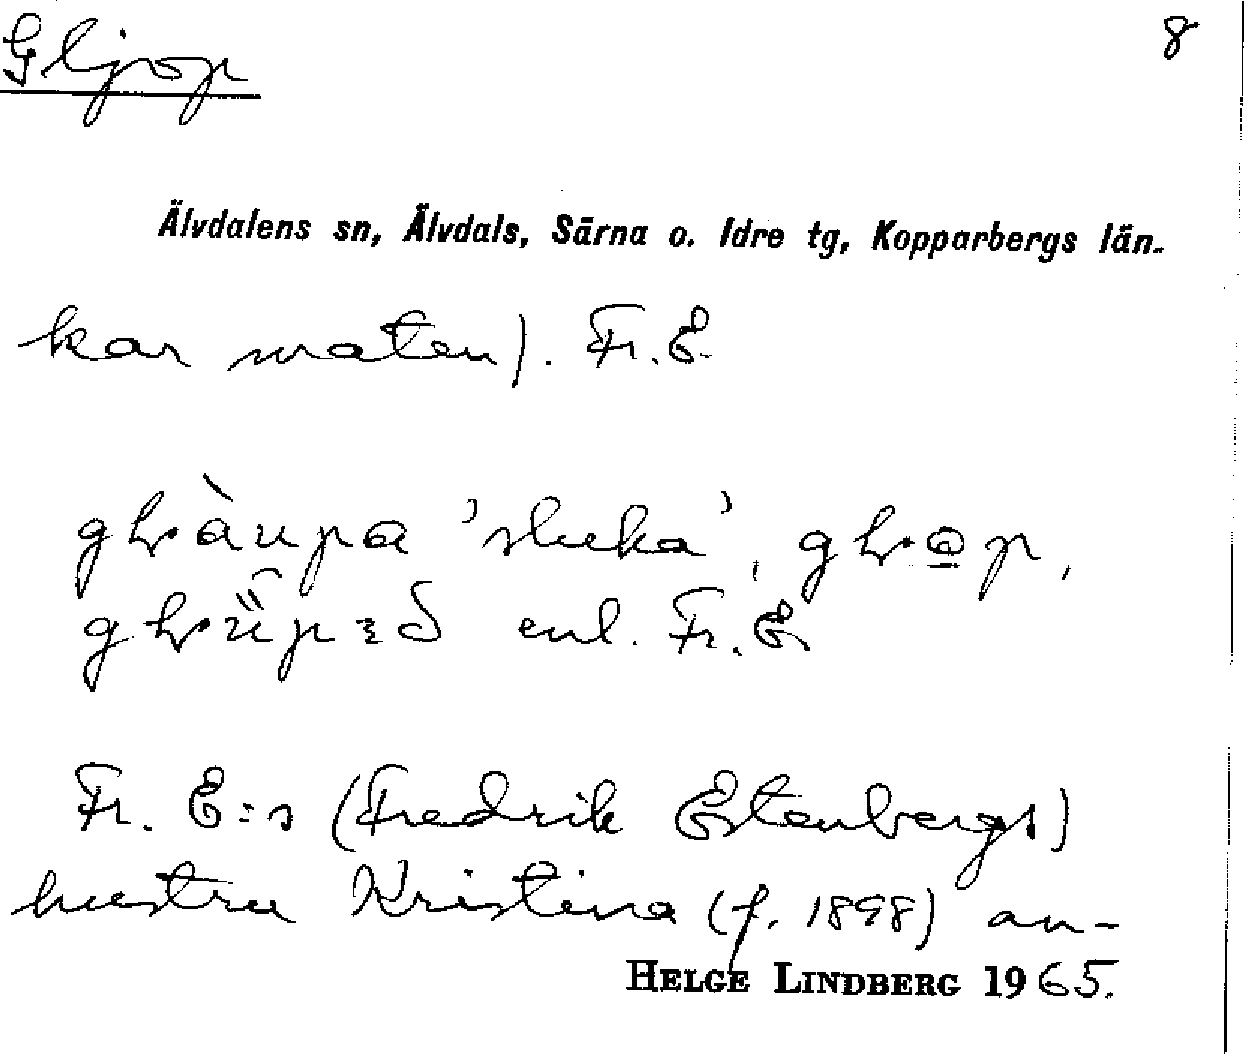 Gljop 8
Älvdalens sn, Älvdals, Särna o. Idre tg, Kopparbergs län.
kar maten). Fr. E.
'sluka',
enl. Fr. E.
Fr. E:s (Fredrik Estenbergs)
hustru Kristina (f. 1898) an-
HELGE LINDBERG 1965.